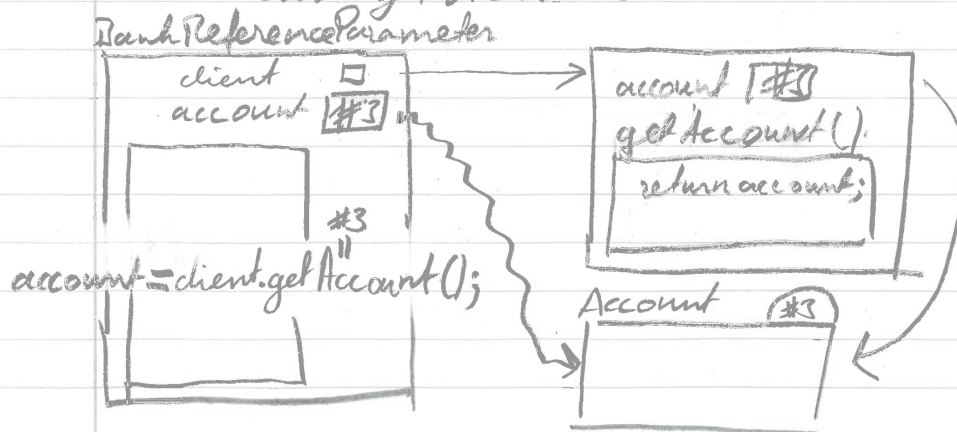 BankReferenceParameter
client
account #3
#3
"
account = client.getAccount();
account #3
getAccount().
return account;
Account #3